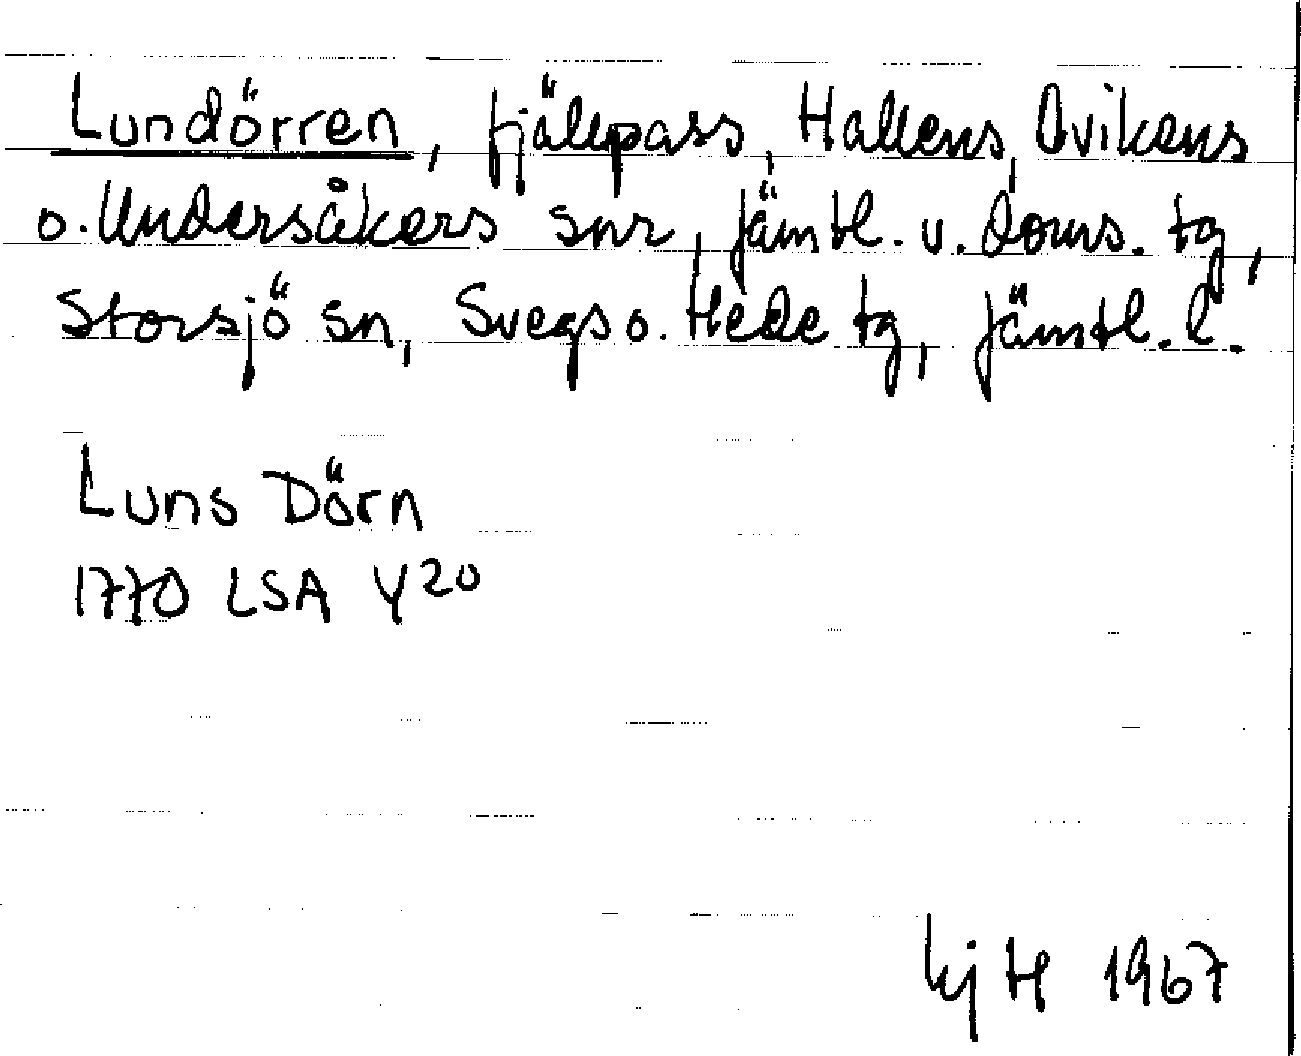 Lundörren, fjällpass, Hallens, Ovikens
o. Undersåkers snr, Jämtl. v. doms. tg,
Storsjö sn, Svegs o. Hede tg, Jämtl. l.
Luns Dörn
1770 LSA Y20
H 1967